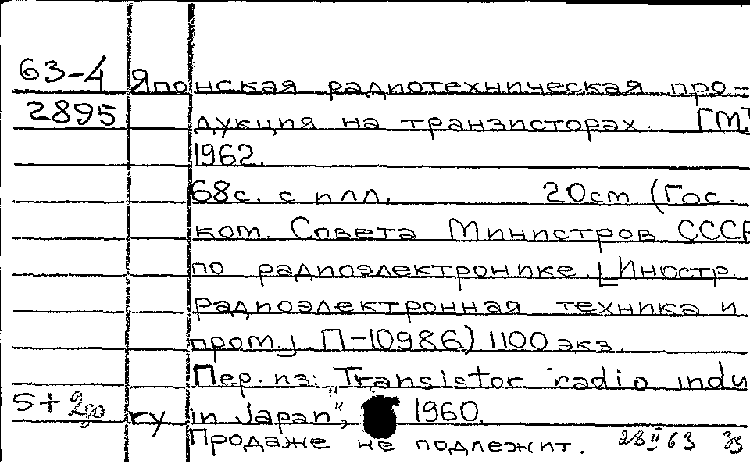 63-4 Японская радиотехническая про-
2895 дукция на транзисторах. [М]
1962.
68с. с илл. 20cm (Гос.
ком. Совета Министров СССР
по радиоэлектронике. [Иностр.
радиоэлектронная техника и
пром.] П-10986) 1100 экз.
Пер. из: "Transistor radio indu
5+ ry in Japan", 1960.
Продаже не подлежит. 28 II 63